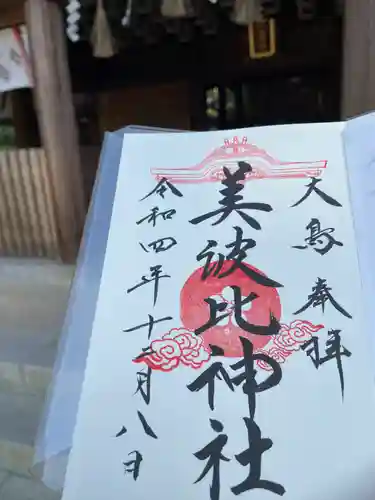 大鳥 奉拝
美波比神社
令和四年十二月八日